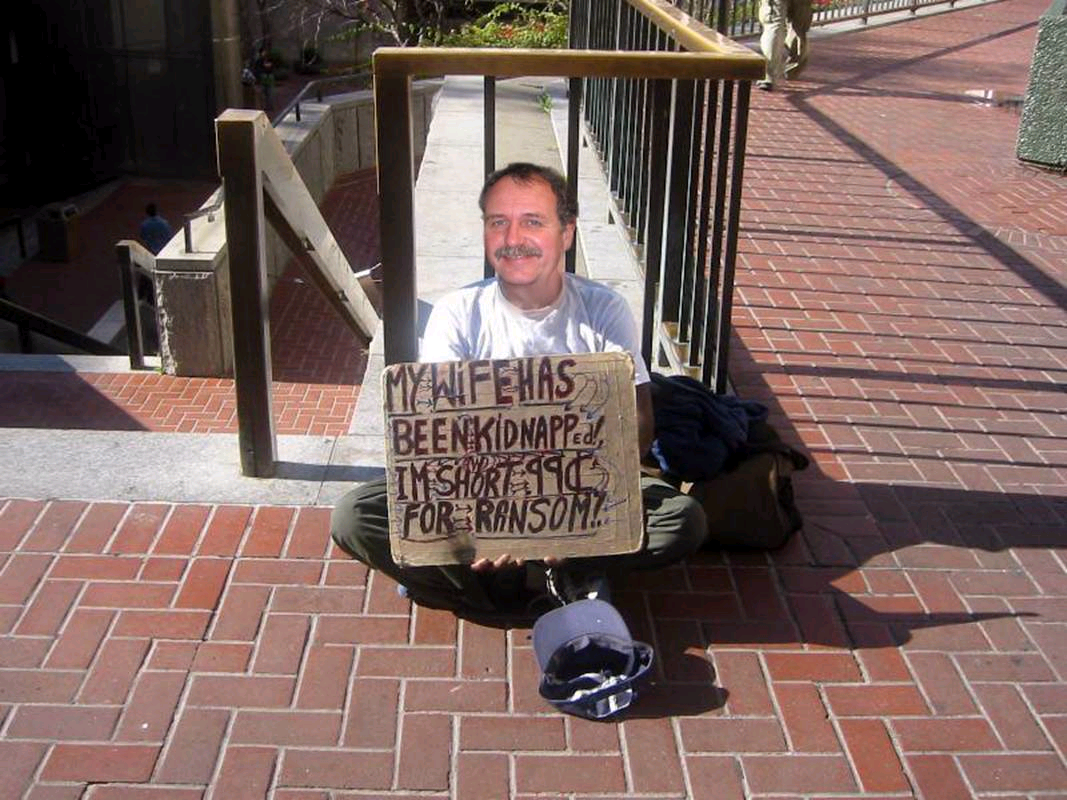 MY WiFE HAS
BEEN KIDNAPPed!
IM SHORT 99¢
FOR RANSOM!!